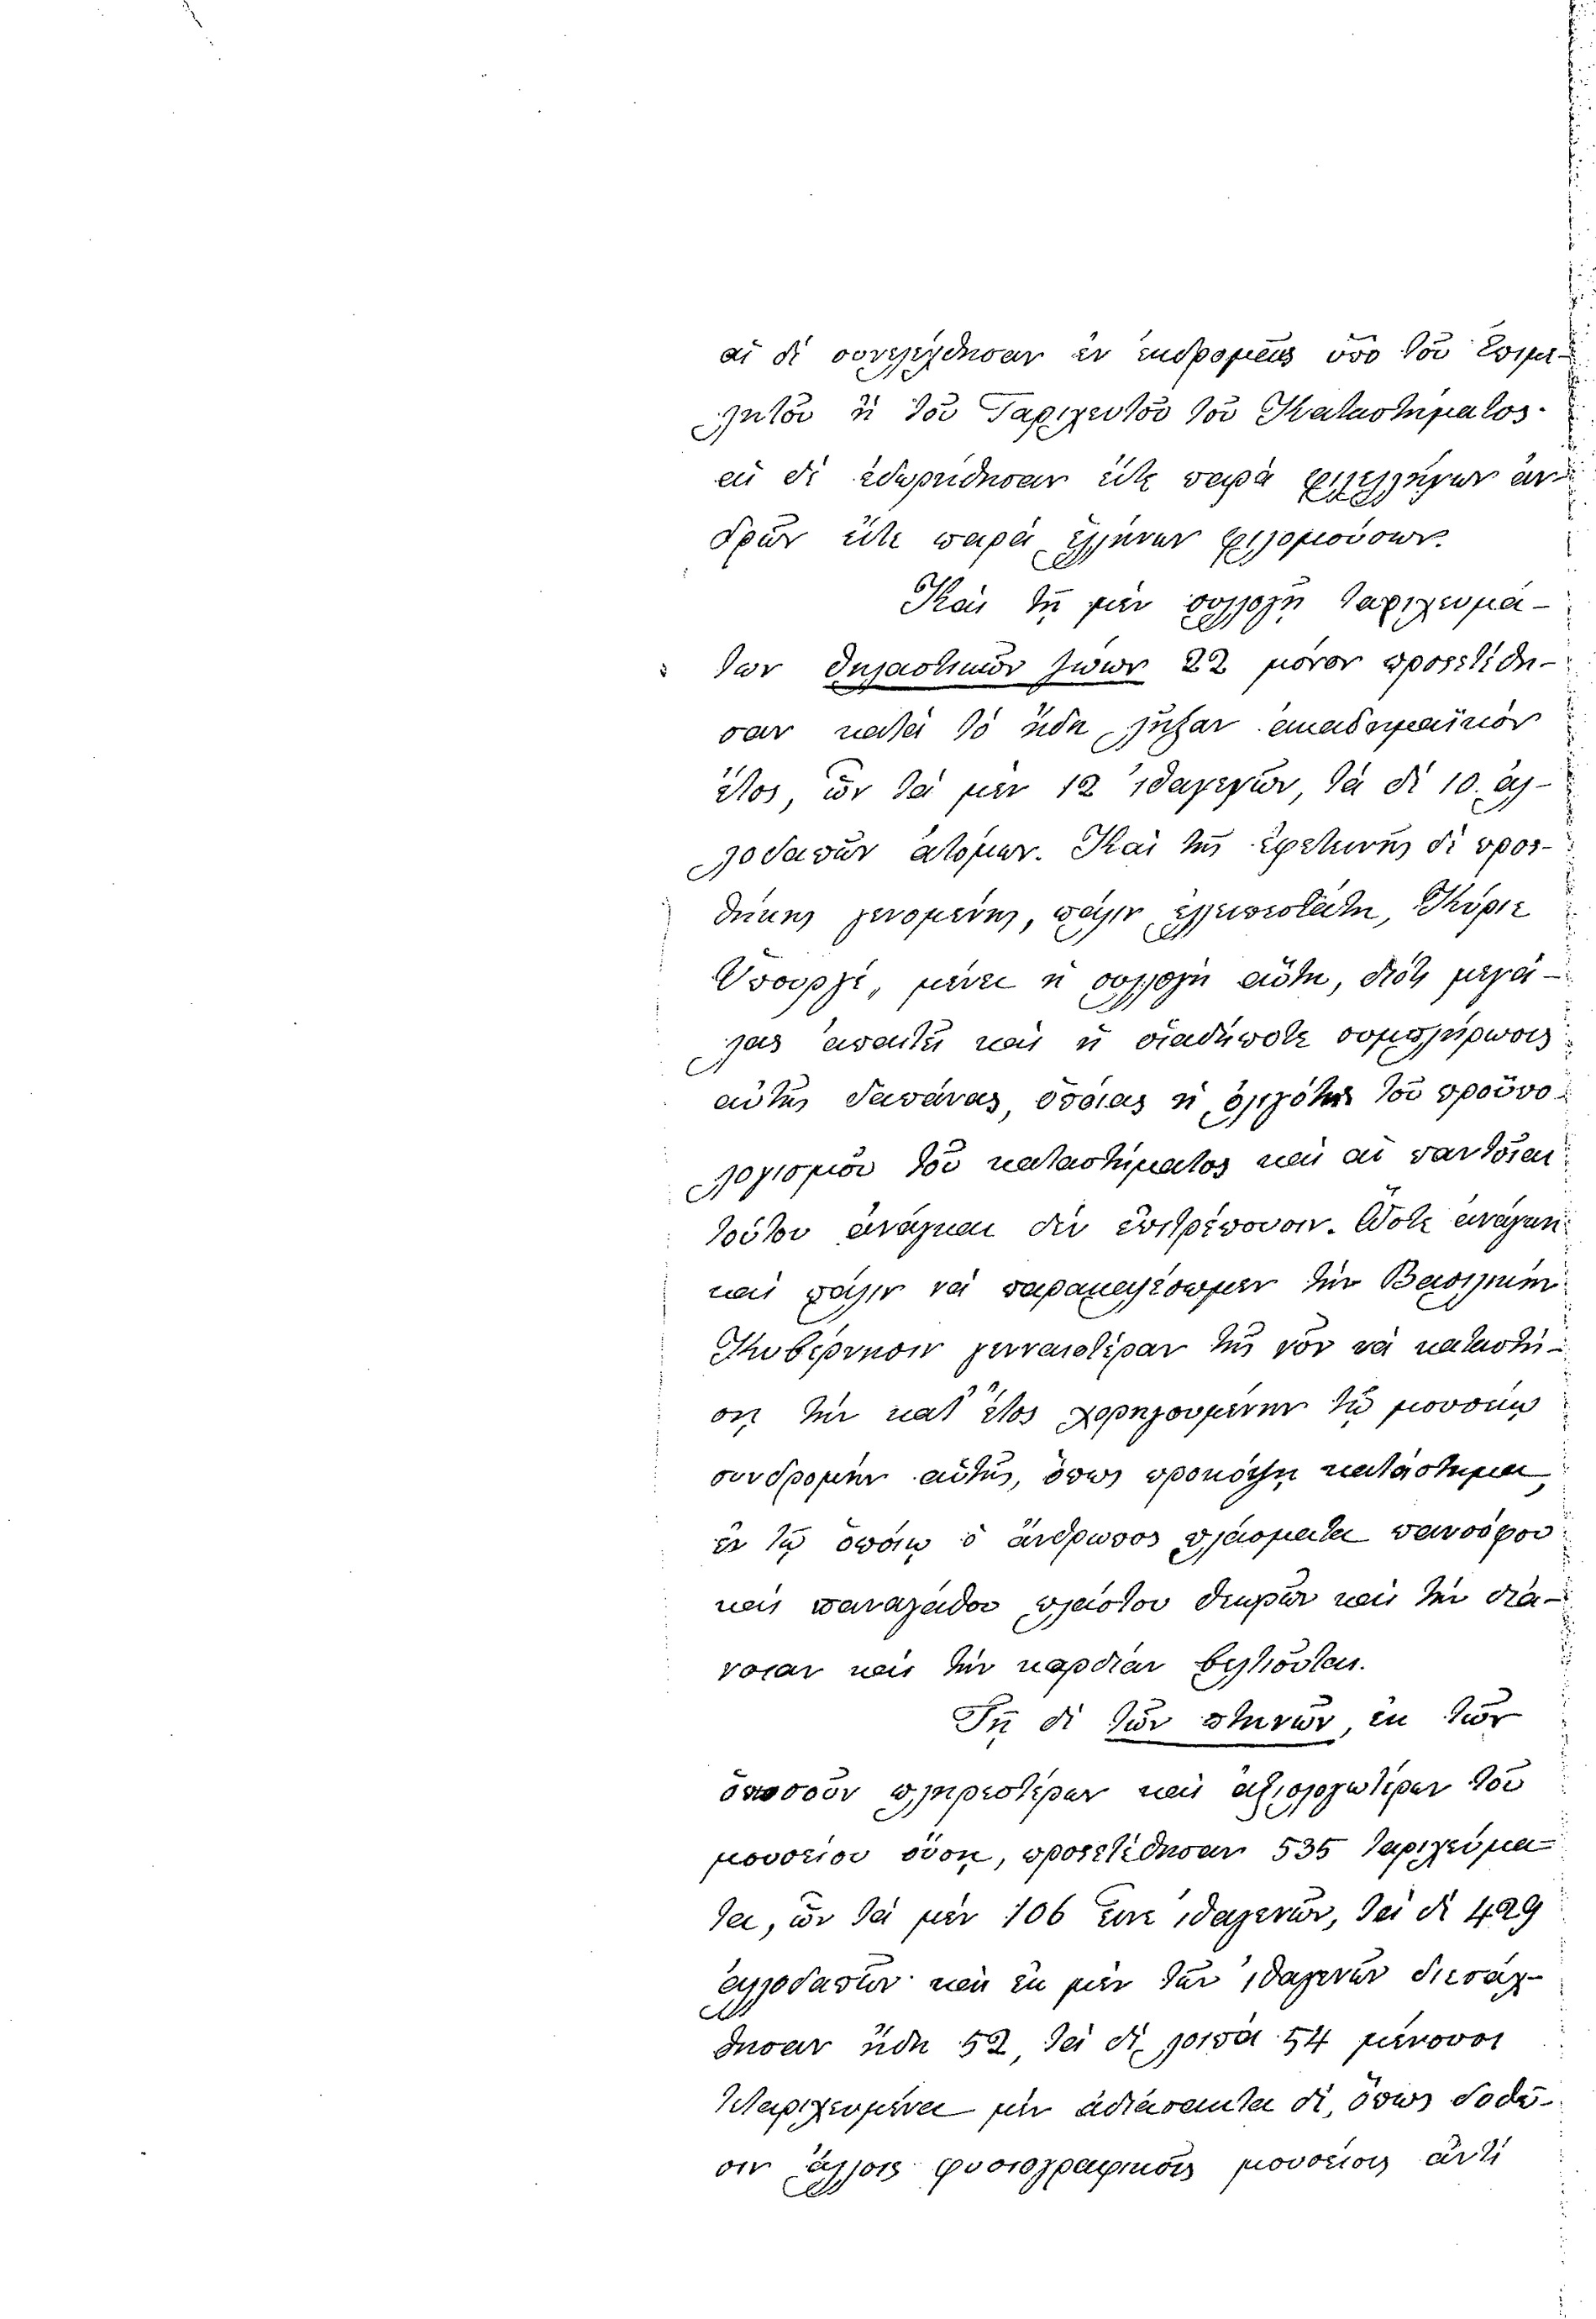 αἱ δὲ συνελέχθησαν ἐν ἐκδρομαῖς ὑπὸ τοῦ Ἐπιμε-
λητοῦ ἢ τοῦ Ταριχευτοῦ τοῦ Καταστήματος·
αἱ δὲ ἐδωρήθησαν εἴτε παρὰ φιλελλήνων ἀν-
δρῶν εἴτε παρὰ ἑλλήνων φιλομούσων.
Καὶ τῇ μὲν συλλογῇ ταριχευμά-
των θηλαστικῶν ζώων 22 μόνον προσετέθη-
σαν κατὰ τὸ ἤδη λῆξαν ἀκαδημαϊκὸν
ἔτος, ὧν τὰ μὲν 12 ἰθαγενῶν, τὰ δὲ 10 ἀλ-
λοδαπῶν ἀτόμων. Καὶ τῆς ἐφετινῆς δὲ προσ-
θήκης γενομένης, πάλιν ἐλλιπεστάτη, Κύριε
Ὑπουργέ, μένει ἡ συλλογὴ αὕτη, διότι μεγά-
λας ἀπαιτεῖ καὶ ἡ οἱαδήποτε συμπλήρωσις
αὐτῆς δαπάνας, ὁποίας ἡ ὀλιγότης τοῦ προϋπο-
λογισμοῦ τοῦ καταστήματος καὶ αἱ παντοῖαι
τούτου ἀνάγκαι δὲν ἐπιτρέπουσιν. Ὥστε ἀνάγκη
καὶ πάλιν νὰ παρακαλέσωμεν τὴν Βασιλικὴν
Κυβέρνησιν γενναιοτέραν τῆς νῦν νὰ καταστή-
σῃ τὴν κατ' ἔτος χορηγουμένην τῷ μουσείῳ
συνδρομὴν αὐτῆς, ὅπως προκόψῃ κατάστημα,
ἐν τῷ ὁποίῳ ὁ ἄνθρωπος πλάσματα πανσόφου
καὶ παναγάθου πλάστου θεωρῶν καὶ τὴν διά-
νοιαν καὶ τὴν καρδίαν βελτιοῦται.
Τῇ δὲ τῶν πτηνῶν, ἐκ τῶν
ὁπωσοῦν πληρεστέρων καὶ ἀξιολογωτέρων τοῦ
μουσείου οὔσῃ, προσετέθησαν 535 ταριχεύμα-
τα, ὧν τὰ μὲν 106 εἶνε ἰθαγενῶν, τὰ δὲ 429
ἀλλοδαπῶν· καὶ ἐκ μὲν τῶν ἰθαγενῶν διεπάχ-
θησαν ἤδη 52, τὰ δὲ λοιπὰ 54 μένουσι
τεταριχευμένα μὲν ἀδιάπακτα δέ, ὅπως δοθῶ-
σιν ἄλλοις φυσιογραφικοῖς μουσείοις ἀντὶ